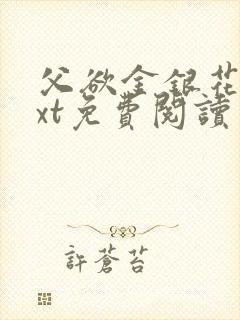 父欲金銀花
xt免費閱讀
許蒼苔